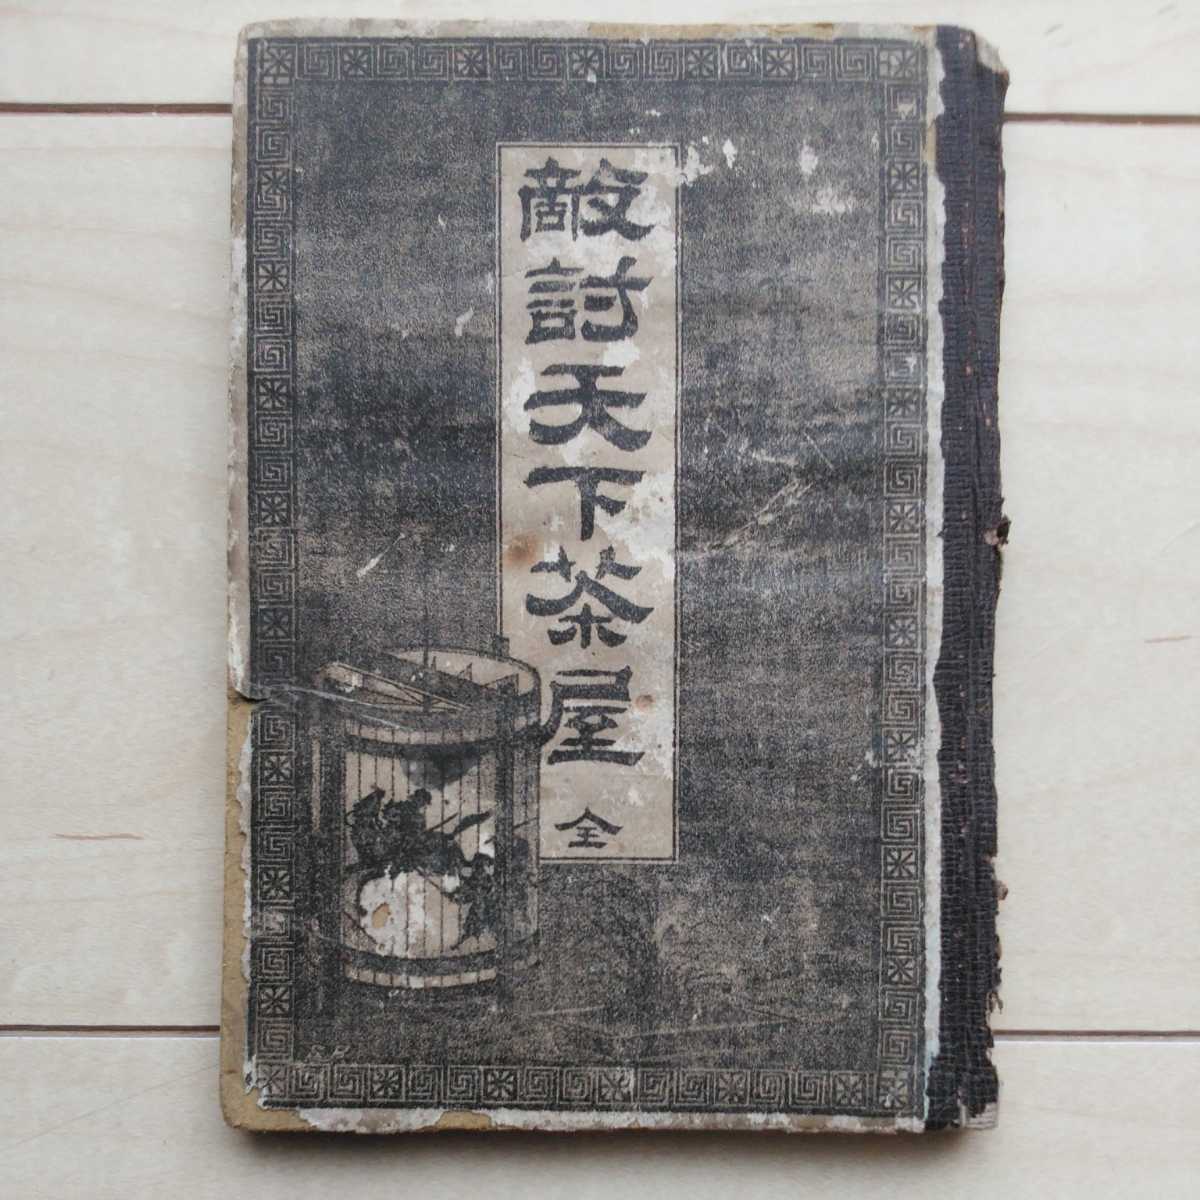 敵討天下茶屋
全